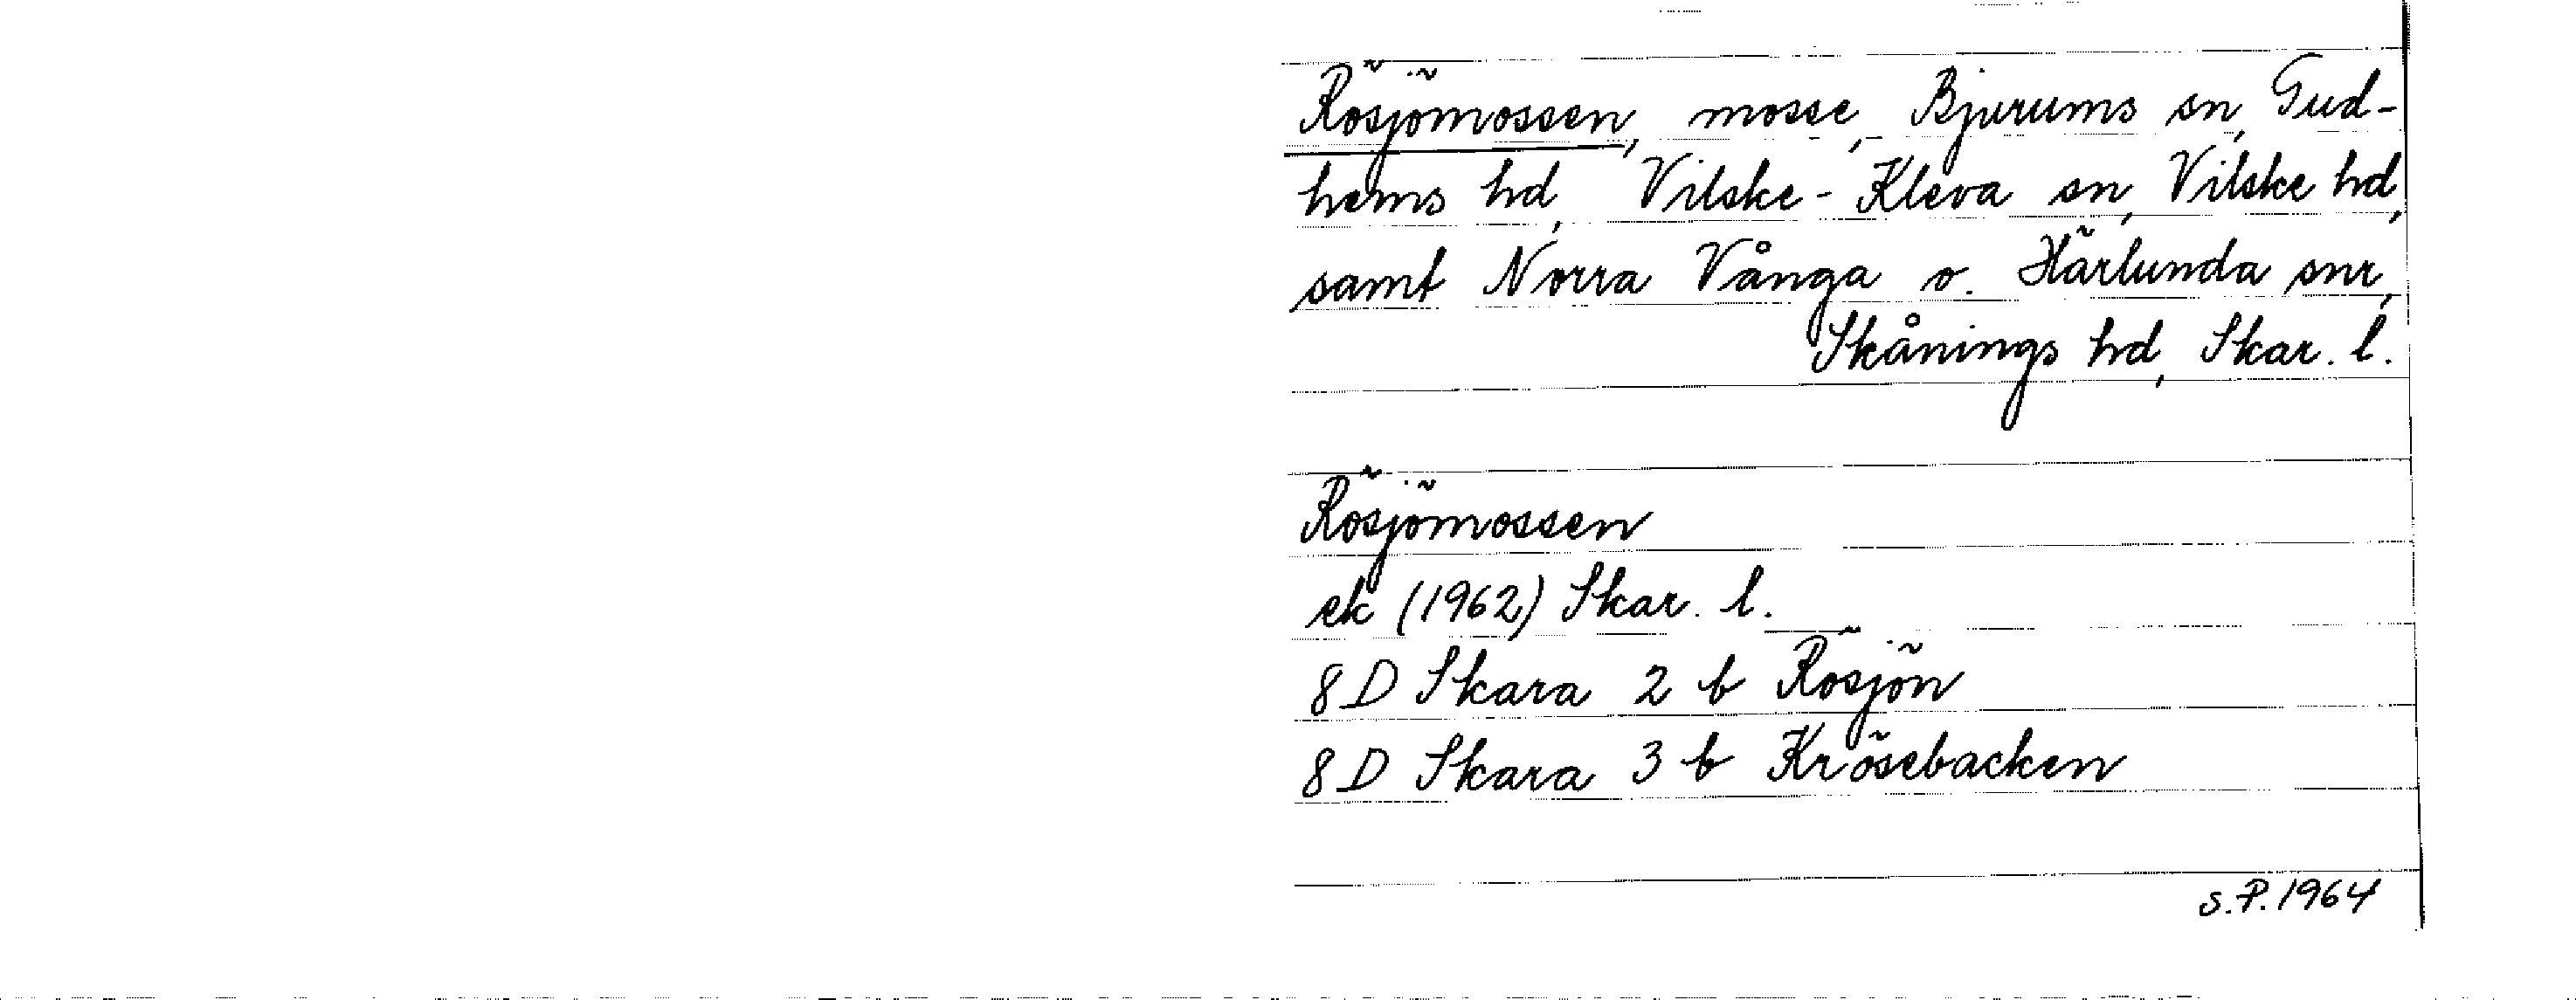 Rösjömossen, mosse, Bjurums sn, Gud-
hems hd, Vilske-Kleva sn, Vilske hd,
samt Norra Vånga o. Härlunda snr,
Skånings hd, Skar. l.
Rösjömossen
ek (1962) Skar. l.
8D Skara 2 b Rösjön
8D Skara 3 b Krösebacken
S.P. 1964